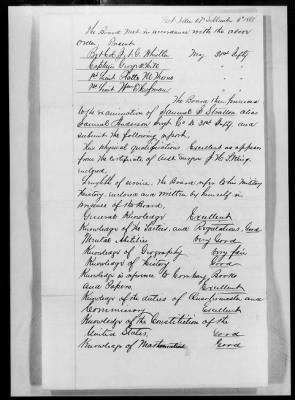 The Board met in accordance with the above
order, Present
Maj 20th Infty
Captain
1st Lieut
2nd Lieut Wm
The Board then
examination of Samuel alias
Samuel Anderson Co 20th Infty. and
submit the following report.
His physical qualifications Excellent as appears
from the certificate of Asst Surgeon
enclosed.
Length of service. The Board refer to his Military
History, enclosed and written by himself in
presence of the Board.
General Knowledge Excellent
Knowledge of the Tactics, and Regulations, Good
Mental Abilities Very Good
Knowledge of Geography Very fair
Knowledge of History Good
Knowledge in reference to Company Books
and Papers. Excellent
Knowledge of the duties of Quartermaster and
Commissary Excellent
Knowledge of the Constitution of the
United States. Good
Knowledge of Mathematics Good